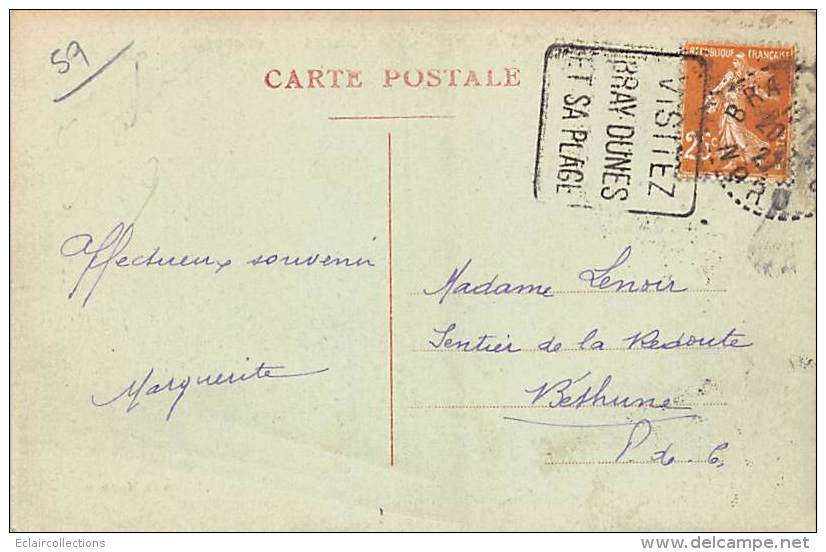 59
CARTE POSTALE
VISITEZ
BRAY DUNES
ET SA PLAGE
REPUBLIQUE FRANÇAISE
25c
BRA
NOR
Affectueux souvenir
Marguerite
Madame Lenoir
Sentier de la Redoute
Béthune
P. de. C.
Eclaircollections
delcampe.net